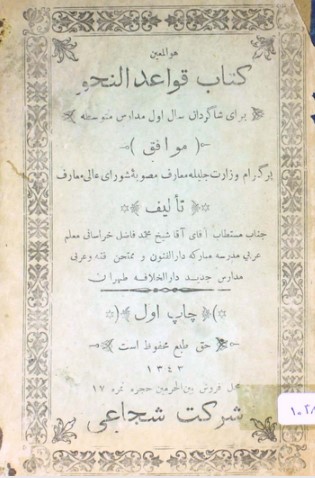 هو المعین
کتاب قواعد النحو
برای شاگردان سال اول مدارس متوسطه
(موافق)
پرگرام وزارت جلیله معارف مصوبهٔ شورای عالی معارف
تألیف
جناب مستطاب آقای آقا شیخ محمد فاضل خراسانی معلم
عربی مدرسه مبارکه دارالفنون و ممتحن فقه و عربی
مدارس جدید دارالخلافه طهران
(چاپ اول)
حق طبع محفوظ است
۱۳۴۲
محل فروش بین الحرمین حجره نمره ۱۷
شرکت شجاعی